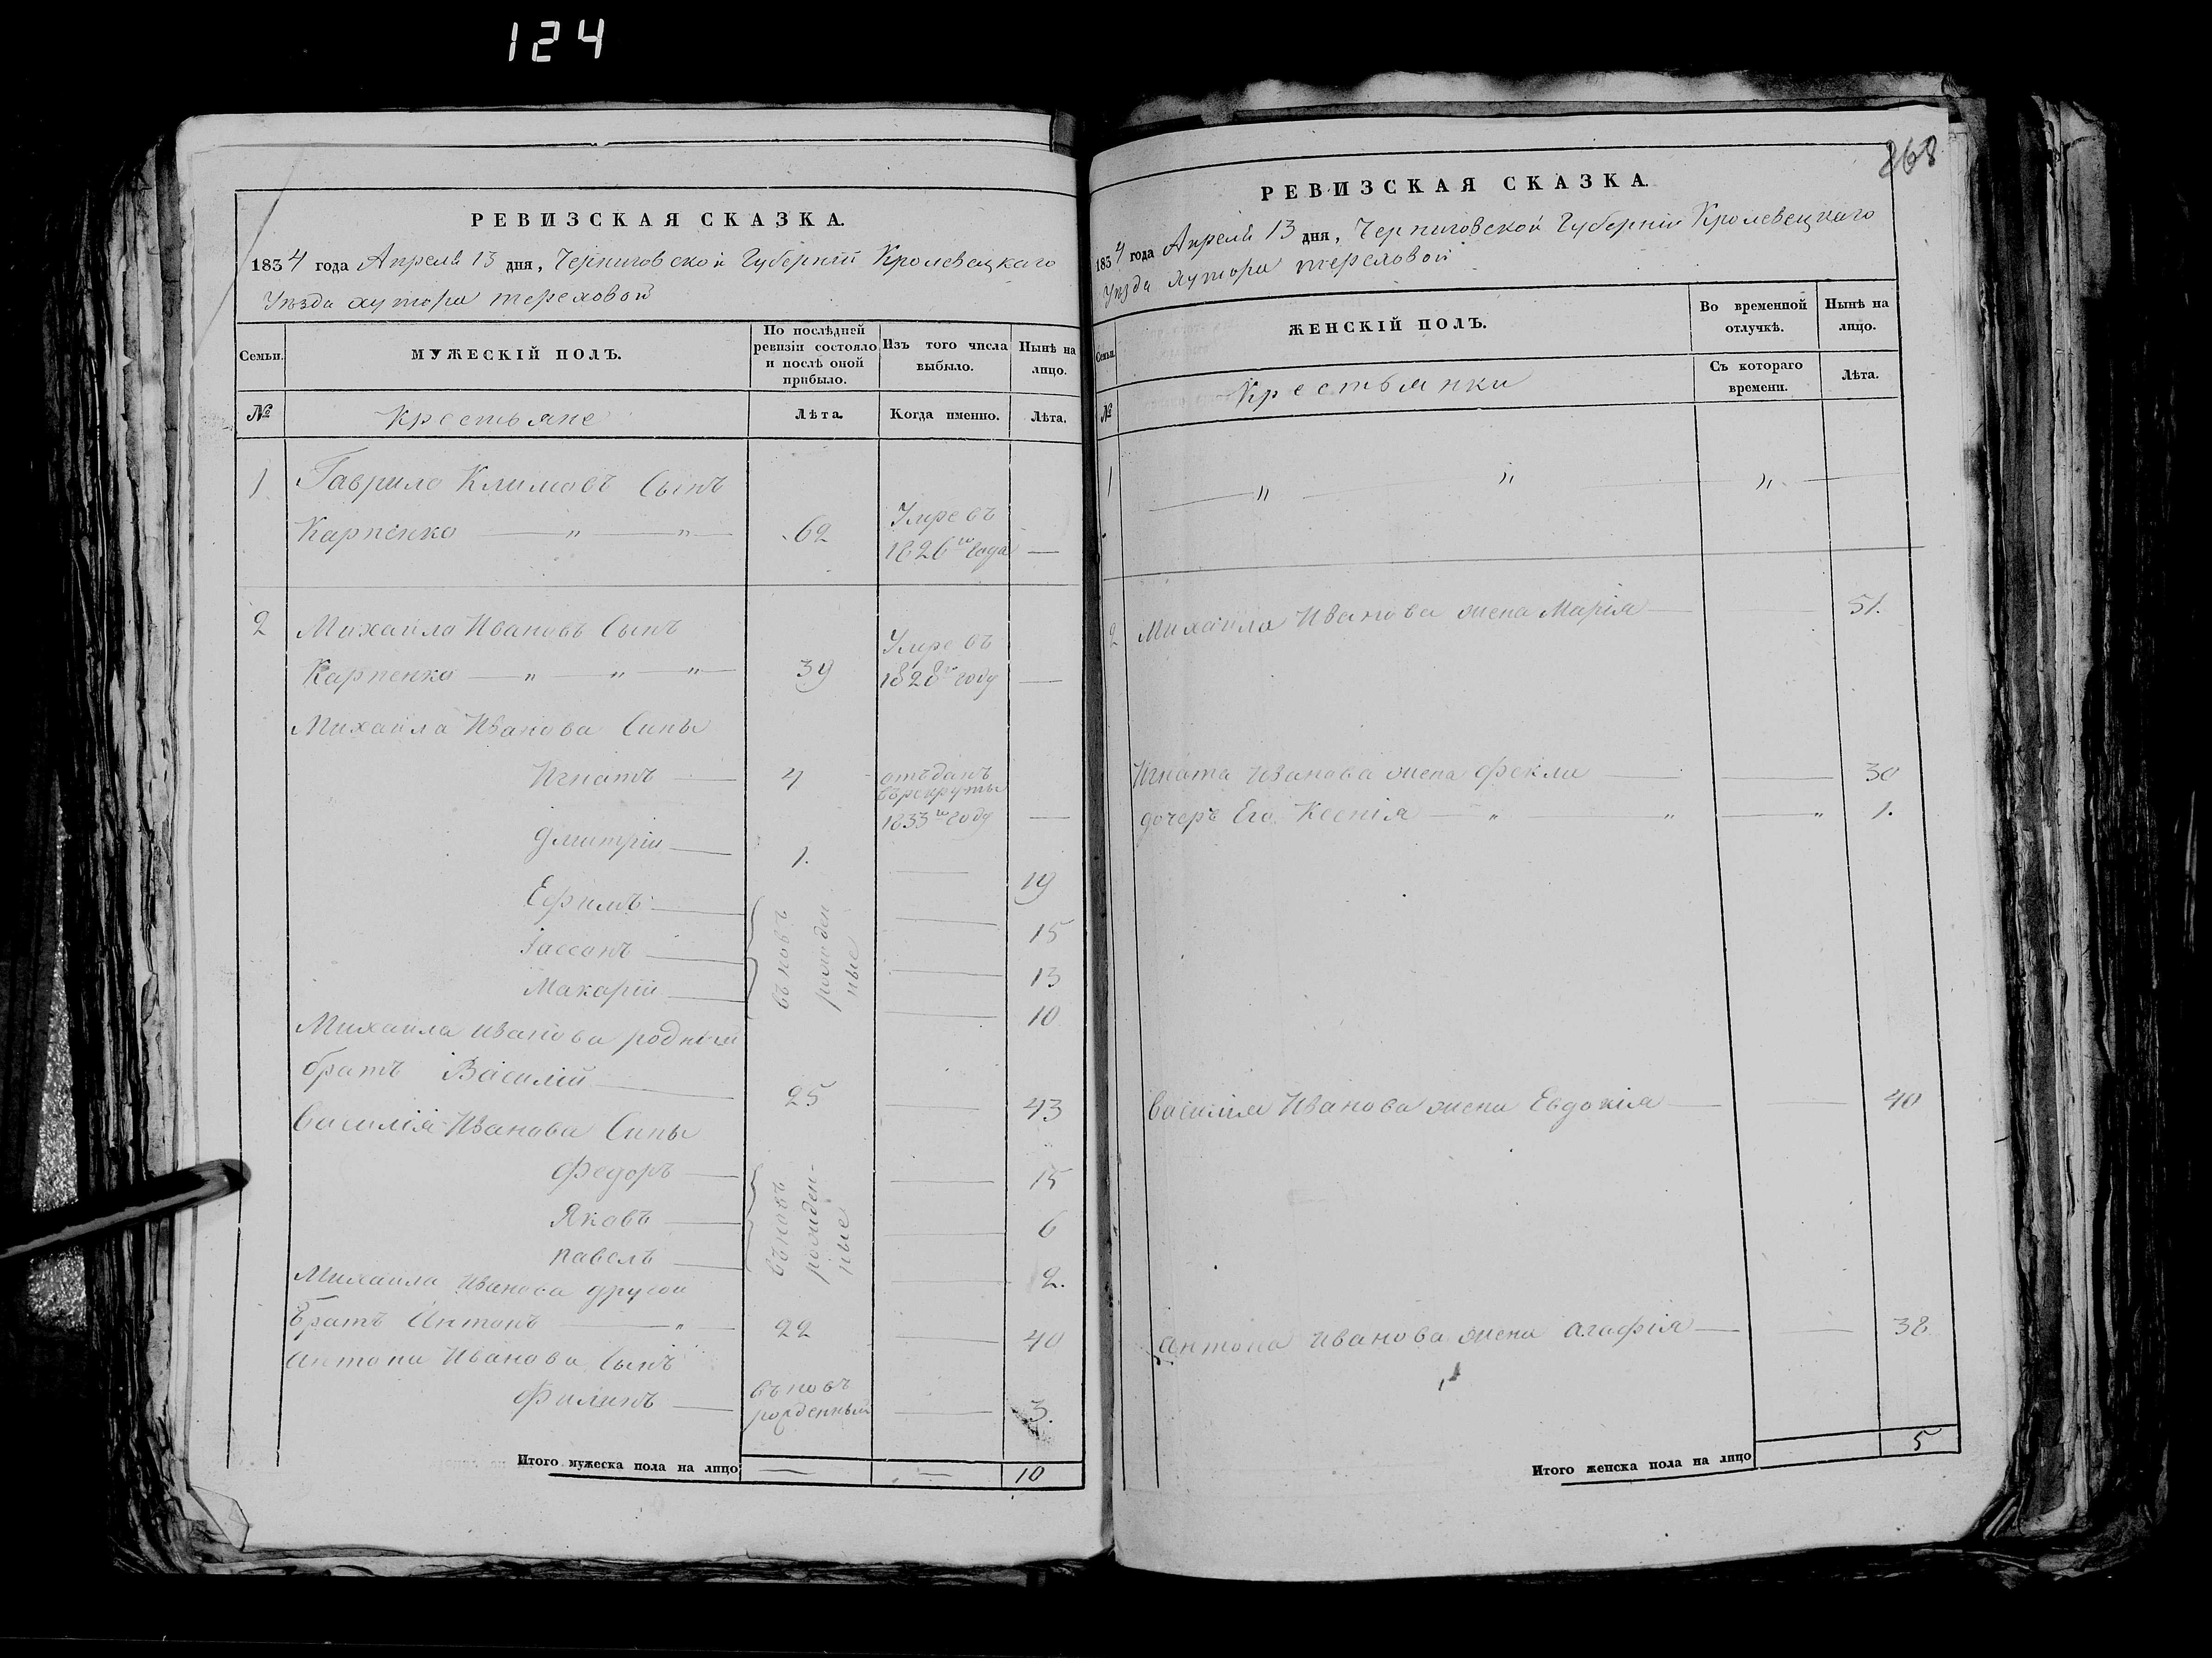 124
РЕВИЗСКАЯ СКАЗКА.
1834 года Апреля 13 дня, Черниговской Губернїи Кролевецкаго
Уезда хутора терехово́й
Семьи. МУЖЕСКІЙ ПОЛЪ. По послѣдней ревизіи состояло и послѣ оной прибыло. Изъ того числа выбыло. Нынѣ на лицо.
№ Крестьяне Лѣта. Когда именно. Лѣта.
1 Гаврило Климовъ Сынъ
Карпенко — " — " — 62 Умре въ 1826го года —
2 Михаило Ивановъ Сынъ
Карпенко — " — " — " — 39 Умре въ 1828м году —
Михаила Иванова Сины
Игнатъ — 4 отъданъ въ рекруты 1833м году —
Дмитрїи — 1. — 19
Ефимъ — — 15
Іассонъ — въновъ рожденные — 13
Макарїи — — 10
Михаила иванова родний
братъ Василїй — 25 — 43
Василїя Иванова Сины
Федоръ — — 15
Яковъ — въновъ рожденные — 6
павелъ — — 2.
Михаила Иванова другой
братъ Антонъ — " — 22 — 40
антона Иванова Сынъ
Филипъ — въновъ рожденный — 3.
Итого мужеска пола на лицо — — 10
868
РЕВИЗСКАЯ СКАЗКА.
1834 года Апреля 13 дня, Черниговской Губернїи Кролевецкаго
Уезда хутора тереховой
Семьи. ЖЕНСКІЙ ПОЛЪ. Во временной отлучкѣ. Нынѣ на лицо.
№ Крестьянки Съ котораго времени. Лѣта.
1 — " — " — " —
2 Михаила Иванова жена Марїя — — 51.
Игната Иванова жена Фекла — — 30
дочеръ Его Ксенїя — " — " — " 1.
Василїя Иванова жена Евдокїя — — 40
антона иванова жена агафїя — — 38
Итого женска пола на лицо 5